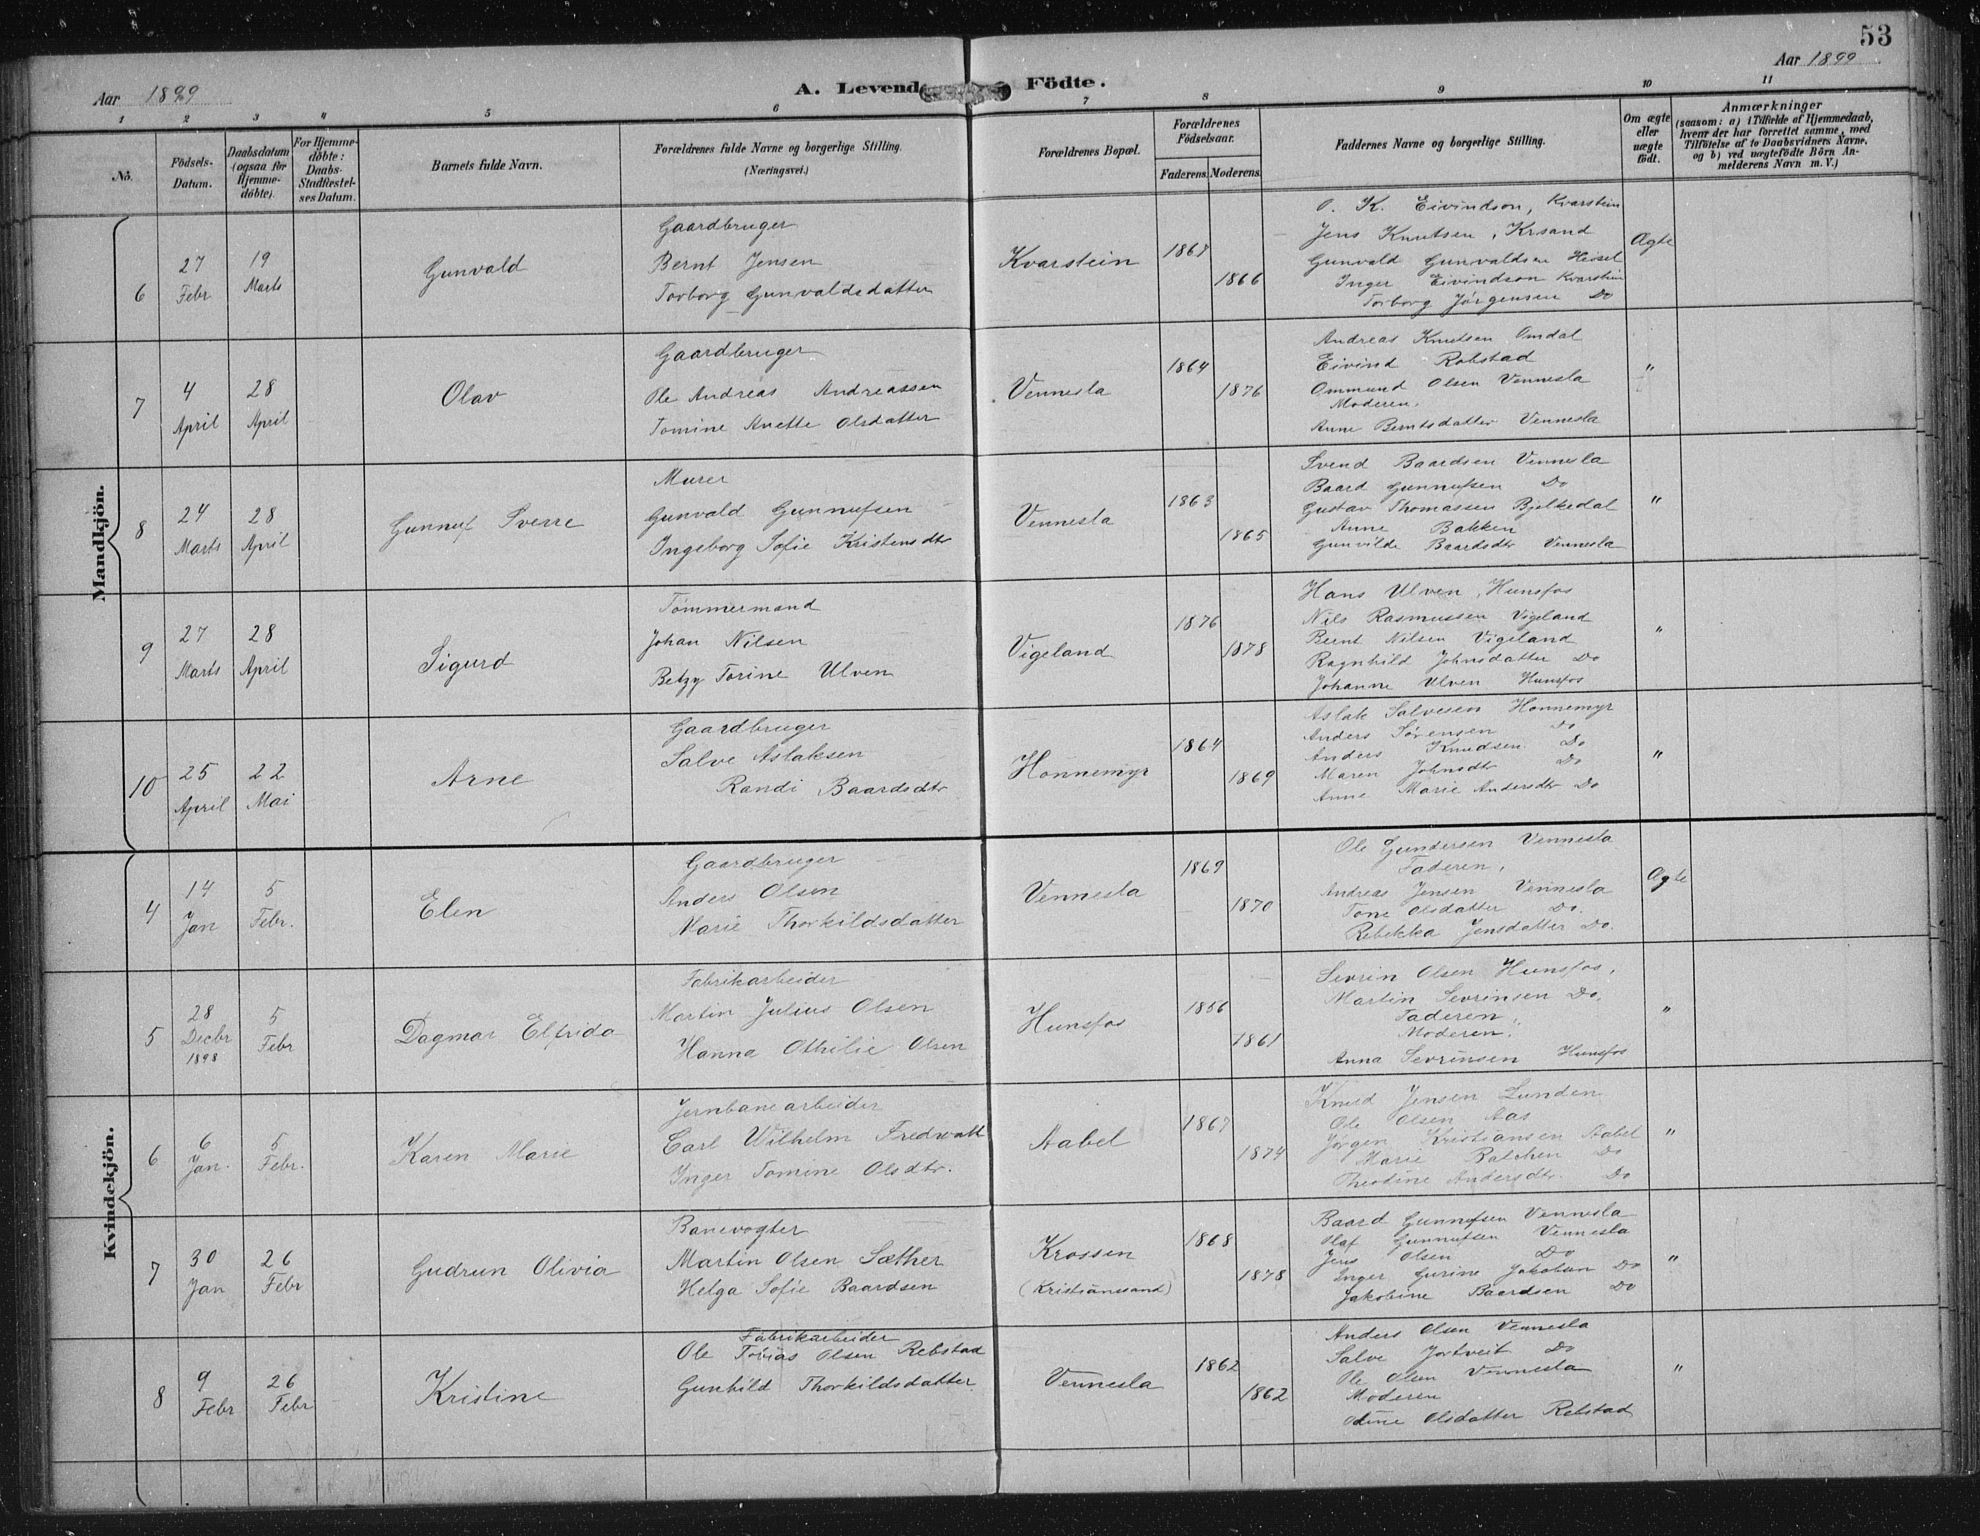 53
Aar 1899
Aar 1899
A. Levende Födte.
1 2 3 4 5 6 7 8 9 10 11
No.
Födsels-Datum.
Daabsdatum (ogsaa for Hjemmedöbte).
For Hjemmedöbte: Daabs-Stadfæstelses Datum.
Barnets fulde Navn.
Forældrenes fulde Navne og borgerlige Stilling. (Næringsvei.)
Forældrenes Bopæl.
Forældrenes Födselsaar.
Faderens. Moderens.
Faddernes Navne og borgerlige Stilling.
Om ægte eller uægte födt.
Anmærkninger (saasom: a) i Tilfælde af Hjemmedaab, hvem der har forrettet samme, med Tilföielse af to Daabsvidners Navne, og b) ved uægtefödte Börn Anmelderens Navn m. V.)
Mandkjön.
6
27 Febr
19 Marts
Gunvald
Gaardbruger
Bernt Jensen
Torborg Gunvaldsdatter
Kvarstein
1867
1866
O. K. Eivindson, Kvarstein
Jens Knutsen, Krsand
Gunvald Gunvaldsen Heisel
Inger Eivindson Kvarstein
Torborg Jörgensen Do
Ægte
7
4 April
28 April
Olav
Gaardbruger
Ole Andreas Andreassen
Tomine Anette Olsdatter
Vennesla
1864
1876
Andreas Knutsen Omdal
Eivind Robstad
Ommund Olsen Vennesla
Moderen.
Anne Berntsdatter Vennesla
"
8
24 Marts
28 April
Gunnuf Sverre
Murer
Gunvald Gunnufsen
Ingeborg Sofie Kristensdtr
Vennesla
1863
1865
Svend Baardsen Vennesla
Baard Gunnufsen Do
Gustav Thomassen Bjelkedal
Anne Bakken
Gunvilde Baardsdtr Vennesla
"
9
27 Marts
28 April
Sigurd
Tömmermand
Johan Nilsen
Betzy Torine Ulven
Vigeland
1876
1878
Hans Ulven, Hunsfos
Nils Rasmussen Vigeland
Bernt Nilsen Vigeland
Ragnhild Johnsdatter Do
Johanne Ulven Hunsfos
"
10
25 April
22 Mai
Arne
Gaardbruger
Salve Aslaksen
Randi Baardsdtr
Honnemyr
1864
1869
Aslak Salvesen Honnemyr
Anders Sörensen Do
Anders Knudsen Do
Maren Johnsdtr Do
Anne Marie Andersdtr Do
"
Kvindekjön.
4
14 Jan
5 Febr.
Elen
Gaardbruger
Anders Olsen
Marie Thorkildsdatter
Vennesla
1869
1870
Ole Gundersen Vennesla
Faderen,
Andreas Jensen Vennesla
Tone Olsdatter Do.
Rebekka Jensdatter Do.
Ægte
5
28 Decbr 1898
5 Febr
Dagmar Elfrida
Fabrikarbeider
Martin Julius Olsen
Hanna Othilie Olsen
Hunsfos
1856
1861
Sevrin Olsen Hunsfos,
Martin Sevrinsen Do,
Faderen,
Moderen,
Anna Sevrinsen Hunsfos
"
6
6 Jan.
5 Febr.
Karen Marie
Jernbanearbeider
Carl Wilhelm Fredwall
Inger Tomine Olsdtr.
Aabel
1867
1874
Knud Jensen Lunden
Ole Olsen Aas
Jörgen Kristiansen Aabel
Marie Balchen Do
Theodine Andersdtr. Do
"
7
30 Jan
26 Febr
Gudrun Olivia
Banevogter
Martin Olsen Sæther
Helga Sofie Baardsen
Krossen
(Kristianssand)
1868
1878
Baard Gunnufsen Vennesla
Olaf Gunnufsen Vennesla
Jens Olsen Do
Inger Gurine Jakobsen Do
Jakobine Baardsen Do
"
8
9 Febr
26 Febr
Kristine
Fabrikarbeider
Ole Tobias Olsen Rebstad
Gunhild Thorkildsdatter
Vennesla
1862
1862
Anders Olsen Vennesla
Salve Jortveit Do
Ole Olsen Vennesla
Moderen
Odine Olsdatter Rebstad
"